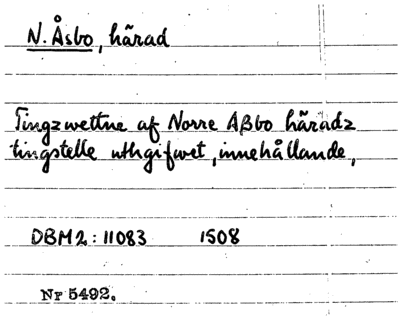 N. Åsbo, härad
Tingzwettne af Norre Aßbo häradz
tingstelle uthgifwet, innehållande,
DBM2: 11083 1508
Nr 5492.